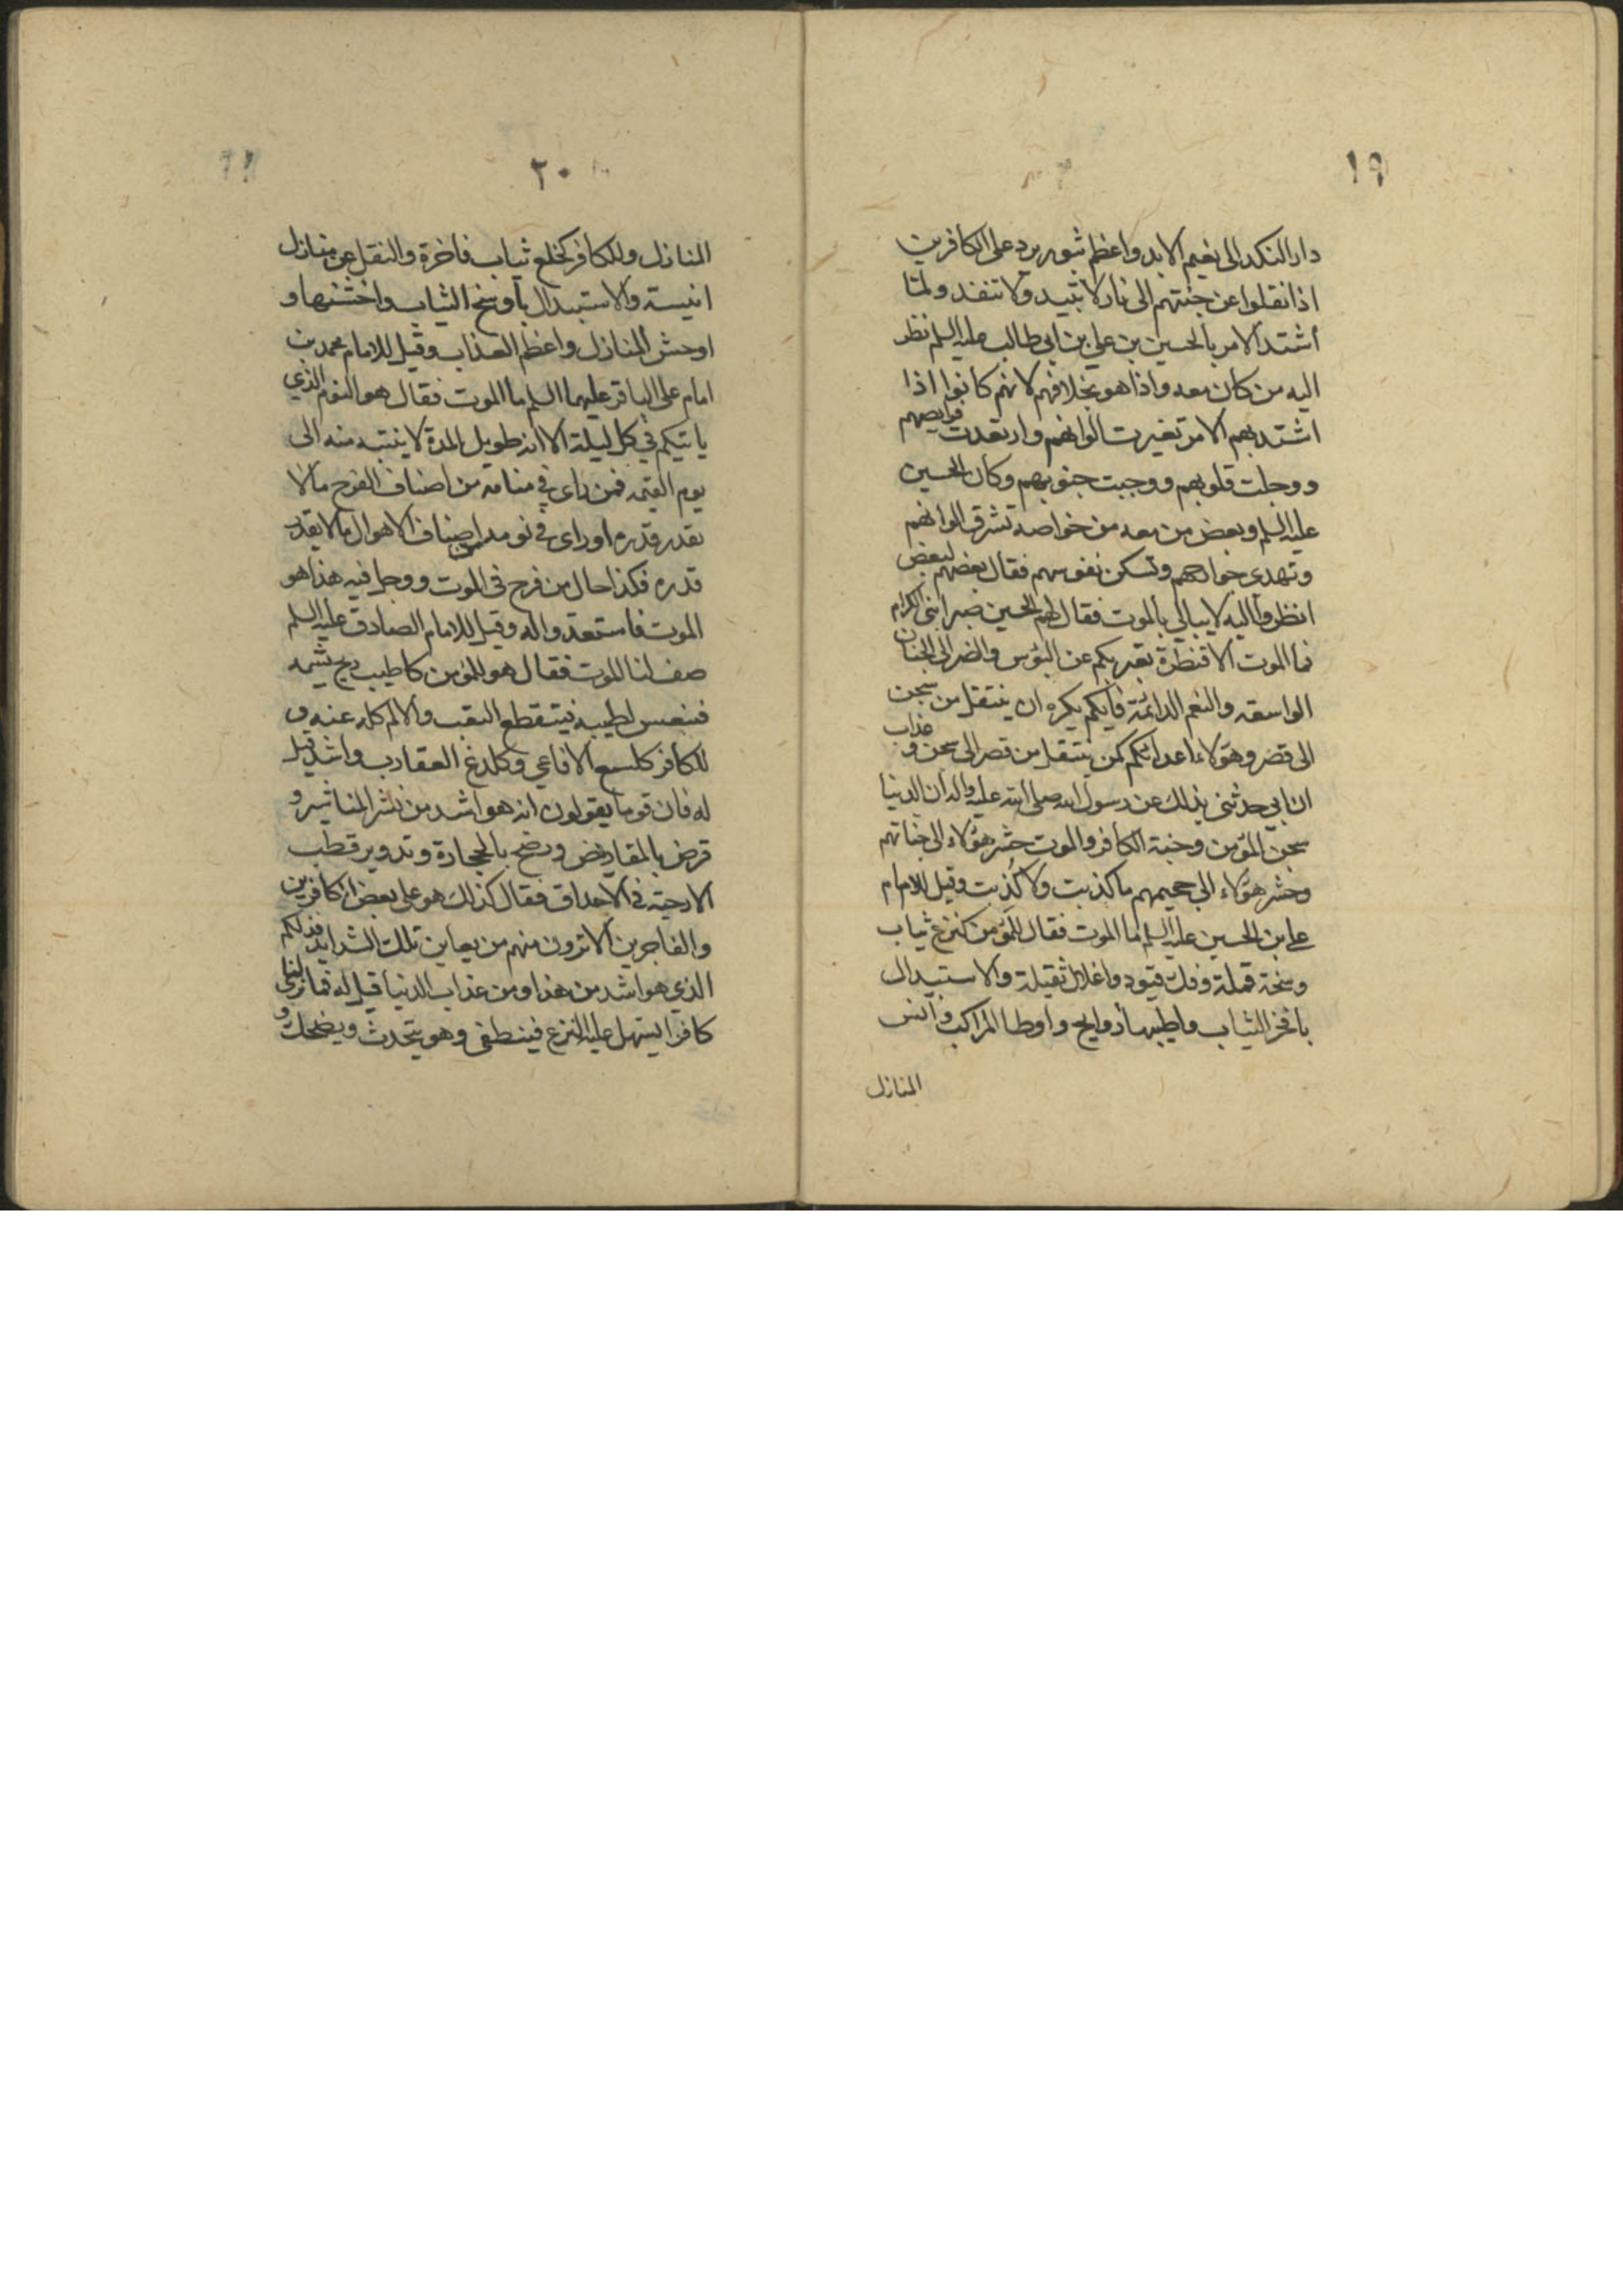 ١٩
دار النكد الى نعيم الابد واعظم ثبور يرد على الكافرين
اذا نقلوا عن جنتهم الى نار لا تبيد ولا تنفد ولما
اشتد الامر بالحسين بن علي بن ابي طالب عليه السلم نظر
اليه من كان معه واذا هو بخلافهم لانهم كانوا اذا
اشتد بهم الامر تغيرت الوانهم وارتعدت فرايصهم
ووجلت قلوبهم ووجبت جنوبهم وكان الحسين
عليه السلم وبعض من معه من خواصه تشرق الوانهم
وتهدى جوارحهم وتسكن نفوسهم فقال بعضهم لبعض
انظروا اليه لا يبالي بالموت فقال لهم الحسين صبرا بنى الكرام
فما الموت الا قنطرة تعبر بكم عن البؤس والضر الى الجنان
الواسعه والنعم الدائمة فايكم يكره ان ينتقل من سجن
الى قصر وهؤلاء اعدائكم كمن ينتقل من قصر الى سجن و عذاب
ان ابي حدثنى بذلك عن رسول الله صلى الله عليه واله ان الدنيا
سجن المؤمن وجنة الكافر والموت جسر هؤلاء الى جناتهم
وجسر هؤلاء الى جحيمهم ما كذبت ولا كُذبت وقيل للامام
على بن الحسين عليه السلم ما الموت فقال للمؤمن كنزع ثياب
وسخة قملة وفك قيود واغلال ثقيلة والاستبدال
بافخر الثياب واطيبها روايح واوطا المراكب وآنس
المنازل
٢٠
المنازل وللكافر كخلع ثياب فاخرة والنقل عن منازل
انيسة والاستبدال باوسخ الثياب واخشنها و
اوحش المنازل واعظم العذاب وقيل للامام محمد بن
امام على الباقر عليهما السلم ما الموت فقال هو النوم الذي
ياتيكم في كل ليلة الا انه طويل المدة لا ينتبه منه الى
يوم القيمه فمن راى في منامه من اصناف الفرح ما لا
يقدر قدره او راى في نومه من اصناف الاهوال ما لا يقدر
قدره فكذا حال من فرح فى الموت ووجل فيه هذا هو
الموت فاستعدوا له وقيل للامام الصادق عليه السلم
صف لنا الموت فقال هو للمؤمن كاطيب ريح يشمه
فينعس لطيبه فيتقطع التعب والالم كله عنه و
للكافر كلسع الافاعي وكلدغ العقارب واشد قيل
له فان قوما يقولون انه هو اشد من نشر المناشير و
قرض بالمقاريض ورضخ بالحجارة وتدوير قطب
الارحية في الاحداق فقال كذلك هو على بعض الكافرين
والفاجرين الا ترون منهم من يعاين تلك الشدايد فذلكم
الذي هو اشد من هذا ومن عذاب الدنيا قيل له فما لنا نرى
كافرا يسهل عليه النزع فينطفى وهو يتحدث ويضحك و